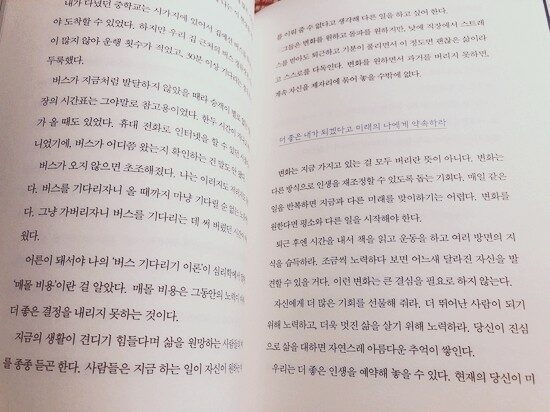 내가 다녔던 중학교는 시가지에 있어서 집에서
야 도착할 수 있었다. 하지만 우리 집 근처의 버스
이 많지 않아 운행 횟수가 적었고, 30분 이상 기다
두룩했다.
버스가 지금처럼 발달하지 않았을 때라 승객이
장의 시간표는 그야말로 참고용이었다. 한두 시간이
가 올 때도 있었다. 휴대 전화로 인터넷을 할 수 있
니었기에, 버스가 어디쯤 왔는지 확인하는 건
버스가 오지 않으면 초조해졌다. 나는 이러지도
다. 버스를 기다리자니 올 때까지 마냥 기다릴 순
다. 그냥 가버리자니 버스를 기다리는 데 써 버렸던
웠다.
어른이 돼서야 나의 '버스 기다리기 이론'이 심리학에서
'매몰 비용'이란 걸 알았다. 매몰 비용은 그동안의 노력이
더 좋은 결정을 내리지 못하는 것이다.
지금의 생활이 견디기 힘들다며 삶을 원망하는 사람들
를 종종 듣곤 한다. 사람들은 지금 하는 일이 자신이
를 이뤄줄 수 없다고 생각해 다른 일을 하고 싶어 한다.
그들은 변화를 원하고 돌파를 원하지만, 낮에 직장에서 스트레
스를 받아도 퇴근하고 기분이 풀리면서 이 정도면 괜찮은 삶이라
고 스스로를 다독인다. 변화를 원하면서 과거를 버리지 못하면,
계속 자신을 제자리에 묶어 놓을 수밖에 없다.
더 좋은 내가 되겠다고 미래의 나에게 약속하라
변화는 지금 가지고 있는 걸 모두 버리란 뜻이 아니다. 변화는
다른 방식으로 인생을 재조정할 수 있도록 돕는 기회다. 매일 같은
일을 반복하면 지금과 다른 미래를 맞이하기는 어렵다. 변화를
원한다면 평소와 다른 일을 시작해야 한다.
퇴근 후엔 시간을 내서 책을 읽고 운동을 하고 여러 방면의 지
식을 습득하라. 조금씩 노력하다 보면 어느새 달라진 자신을 발
견할 수 있을 거다. 이런 변화는 큰 결심을 필요로 하지 않는다.
자신에게 더 많은 기회를 선물해 줘라. 더 뛰어난 사람이 되기
위해 노력하고, 더욱 멋진 삶을 살기 위해 노력하라. 당신이 진심
으로 삶을 대하면 자연스레 아름다운 추억이 쌓인다.
우리는 더 좋은 인생을 예약해 놓을 수 있다. 현재의 당신이 미